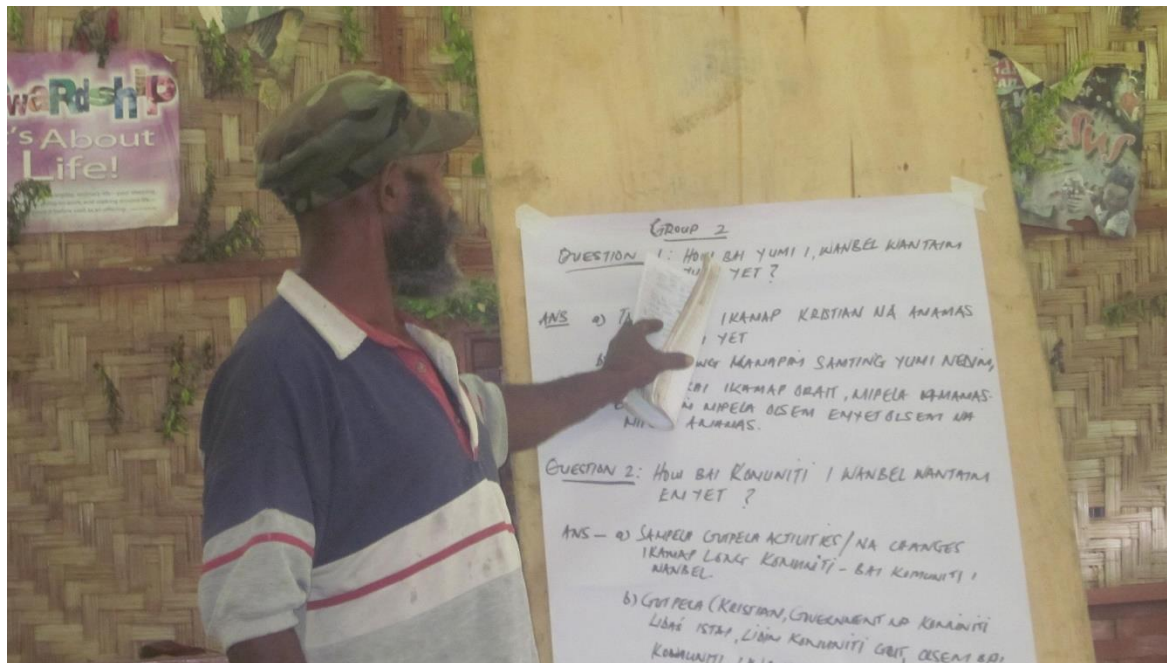 wardship
's About
Life!
esus
GROUP 2
QUESTION 1: HOW BAI YUMI I, WANBEL WANTAIM
YET ?
ANS a) IKAMAP KRISTIAN NA AMAMAS
YET
MANAPIM SAMTING YUMI NEDIM,
IKAMAP ORAIT, MIPELA AMAMAS.
MIPELA OLSEM EMYET OLSEM NA
AMAMAS.
QUESTION 2: HOW BAI KOMUNITI I WANBEL WANTAIM
EM YET ?
ANS – a) SAMPELA GUTPELA ACTIVITIES / NA CHANGES
IKAMAP LONG KOMUNITI – BAI KOMUNITI I
WANBEL.
b) GUTPELA (KRISTIAN, GOVERNMENT NA KOMUNITI
LIDAS ISTAP, LIDIM KOMUNITI GUT, OLSEM BAI
KOMUNITI